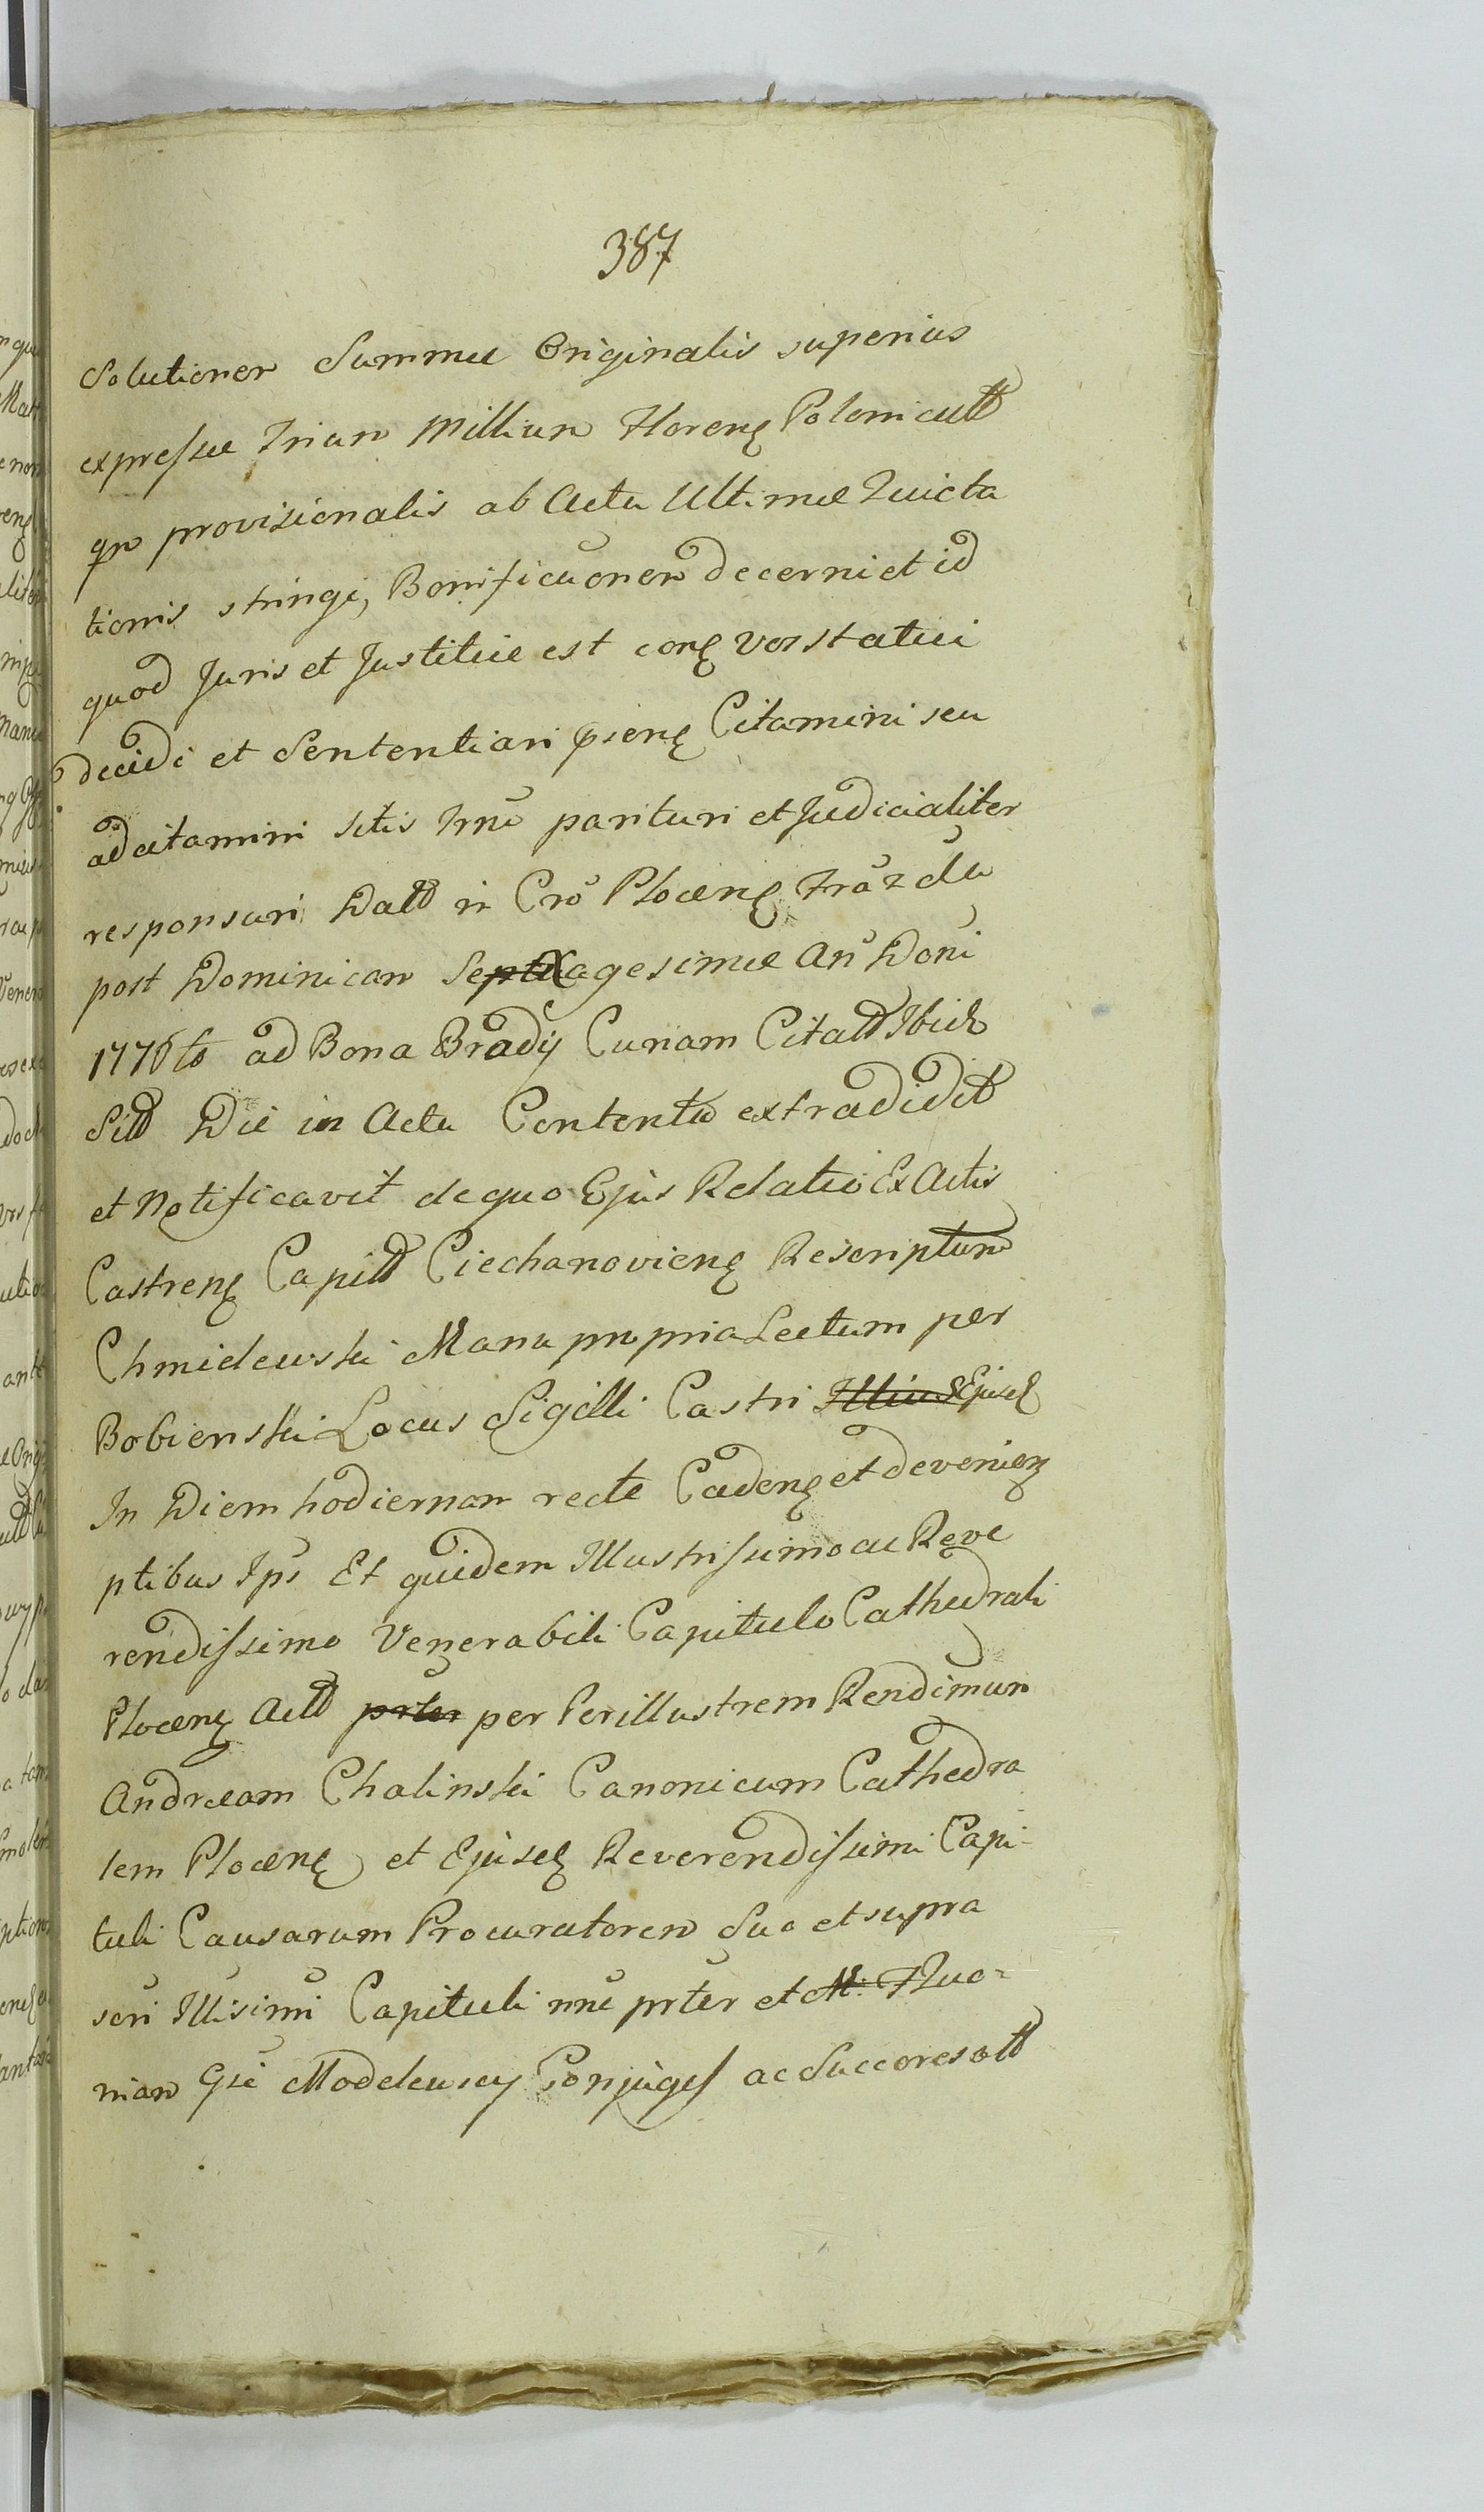 387
Solutionem Summæ Originalis superius
expressæ Trium Millium Floren Polonicalt
qm provisionalis ab Actu Ultimæ Quieta
tionis stringi, Bonificãonem decerni et id
quod Juris et Justitiæ est con vos statui
decidi et Sententiari psen Citamini seu
adcitamini sitis Trni parituri et Judicialiter
responsuri Datt in Cro Plocen Fra 2da
post Dominicam Sexagesimæ An Doni
1776to ad Bona Brady Curiam Citatt Ibid
Sitt Die in Actu Contenta extradidit
et Notificavit de quo Ejus Relatio Ex Actis
Castren Capitt Ciechanovien Rescriptum
Chmielewski Manu propria Lectum per
Bobienski Locus Sigilli Castri Illius Ejusd
In Diem hodiernam recte Caden et devenien
ptibus Ips Et quidem Illustrissimo ac Reve
rendissimo Venerabili Capitulo Cathedrali
Plocen Actt prter per Perillustrem Rendimum
Andræam Chalinski Canonicum Cathedra
lem Plocen et Ejusd Reverendissimi Capi-
tuli Causarum Procuratorem Suo et supra
scri Illisimi Capituli nne prter et M. F Quo=
niam Gsi Modelewscy Conjuges ac Succoresott